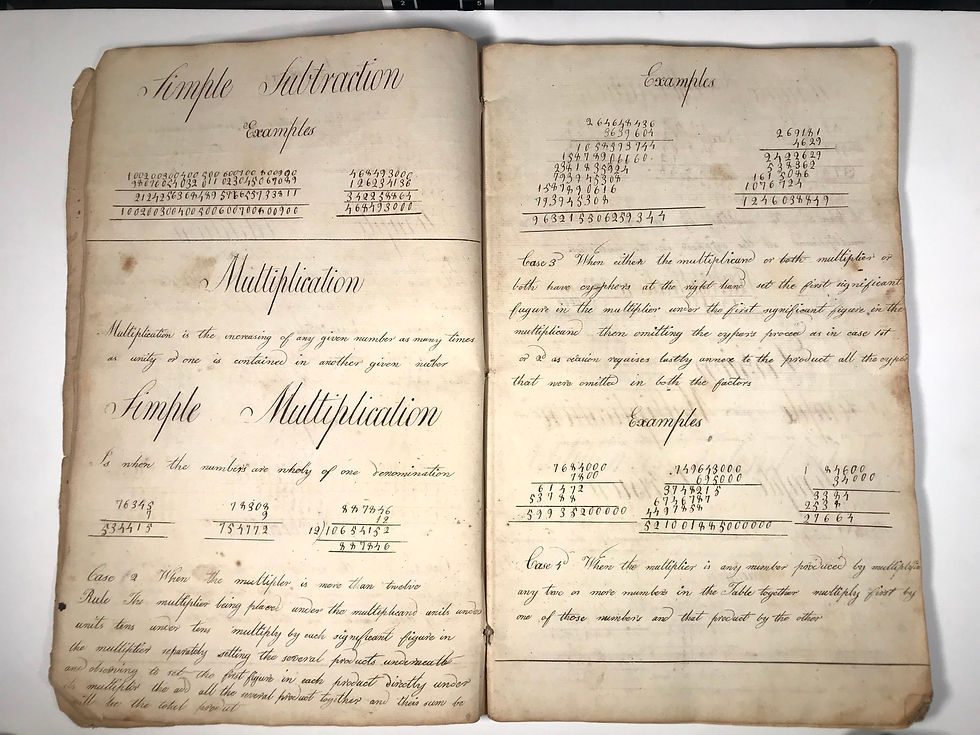 Simple Subtraction
Examples
468493000
126234136
342258864
468493000
Multiplication
Multiplication is the increasing of any given number as many times
as unity or one is contained in another given
Simple Multiplication
Is when the numbers are wholy of one denomination
76345 78308 887846
7 9 12
534415 754772 12)10654152
887846
Case 2 When the multipler is more than twelve
Rule The multiplier being placed under the multiplicand units under
units tens under tens multiply by each significant figure in
the multiplier separately setting the several products underneath
and observing to set the first figure in each product directly under
its multiplier the add all the several product together and their sum be
will be the product
Examples
264648436 269181
3639604 4629
1058593744 2422629
538362
1615086
793945308 1076724
1246038849
963215506259344
Case 3 When either the multiplicand or both multiplier or
both have cyphers at the right hand set the first significant
figure in the multiplier under the first significant figure in the
multiplicand then omitting the cyphers proceed as in case 1st
or 2d as occasion requires lastly annex to the product all the
that were omitted in both the factors
Examples
7684000 749643000 84600
7800 695000 34000
61472 3748215 3384
53788 6746787 2538
59935200000 4497858 27664
521001885000000
Case 4 When the multiplier is any number produced by
any two or more numbers in the Table together multiply first by
one of those numbers and that product by the other